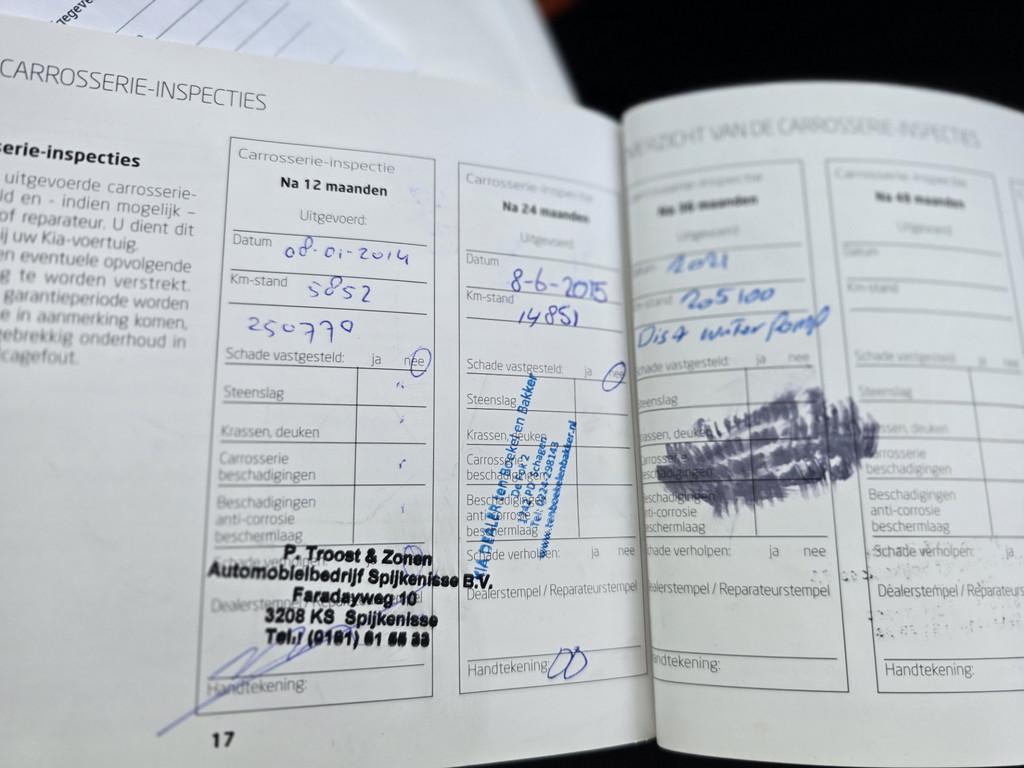 gegeve
CARROSSERIE-INSPECTIES
VAN DE CARROSSERIE-INSPECTIES
serie-inspecties
uitgevoerde carrosserie-
ld en - indien mogelijk –
of reparateur. U dient dit
ij uw Kia-voertuig.
en eventuele opvolgende
g te worden verstrekt.
garantieperiode worden
e in aanmerking komen,
ebrekkig onderhoud in
cagefout.
Carrosserie-inspectie
Na 12 maanden
Uitgevoerd:
Datum 08-01-2014
Km-stand 5852
250779
Schade vastgesteld: ja nee
Steenslag
Krassen, deuken
Carrosserie
beschadigingen
Beschadigingen
anti-corrosie
beschermlaag
P. Troost & Zonen
Automobielbedrijf Spijkenisse B.V.
Faradayweg 10
3208 KS Spijkenisse
Dealerstempel
Handtekening:
17
Carrosserie-inspectie
Na 24 maanden
Uitgevoerd:
Datum 8-6-2015
Km-stand 14851
Schade vastgesteld: ja nee
Steenslag
Krassen, deuken
Carrosserie
beschadigingen
Beschadigingen
anti-corrosie
beschermlaag
KIA DEALER ten Boekel en Bakker
De Fok 2
1742 PD Schagen
Tel: 0224-298143
www.tenboekelenbakker.nl
Schade verholpen: ja nee
Dealerstempel / Reparateurstempel
Handtekening:
Carrosserie-inspectie
Na 36 maanden
Uitgevoerd:
2021
stand 205100
Dis+ water pomp
hade vastgesteld: ja nee
Steenslag
rassen, deuken
beschadigingen
anti-corrosie
beschermlaag
hade verholpen: ja nee
ealerstempel / Reparateurstempel
andtekening:
Carrosserie-inspectie
Na 48 maanden
Uitgevoerd:
Datum
Km-stand
Schade vastgesteld: ja
Steenslag
assen, deuken
arrosserie
beschadigingen
Beschadigingen
anti-corrosie
beschermlaag
Schade verholpen: ja
Dealerstempel / Reparateurs
Handtekening: